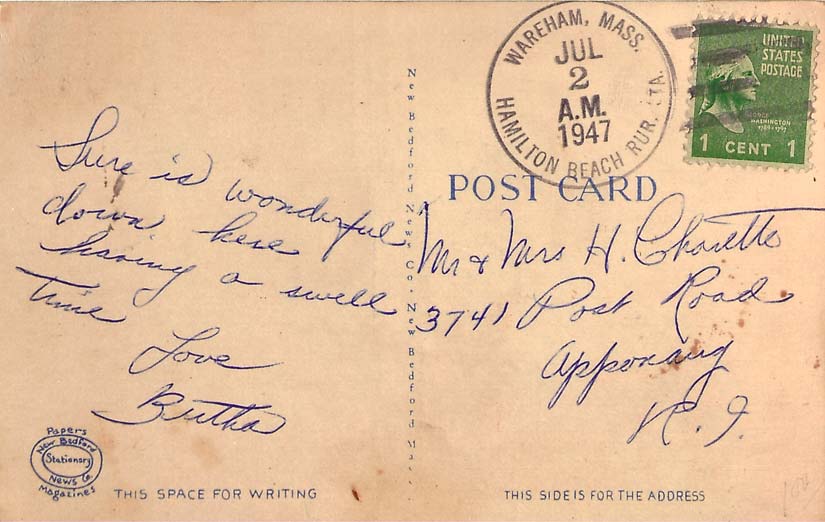 WAREHAM, MASS.
JUL
2
A.M.
1947
HAMILTON BEACH RUR. STA.
UNITED
STATES
POSTAGE
GEORGE
WASHINGTON
1789-1797
1 CENT 1
POST CARD
Sure is wonderful
down here
having a swell
time
Love
Bertha
Mr & Mrs H. Charette
3741 Post Road
Apponaug
R.I.
New Bedford News Co. New Bedford Mass.
Papers
New Bedford
Stationary
News Co
Magazines
THIS SPACE FOR WRITING
THIS SIDE IS FOR THE ADDRESS